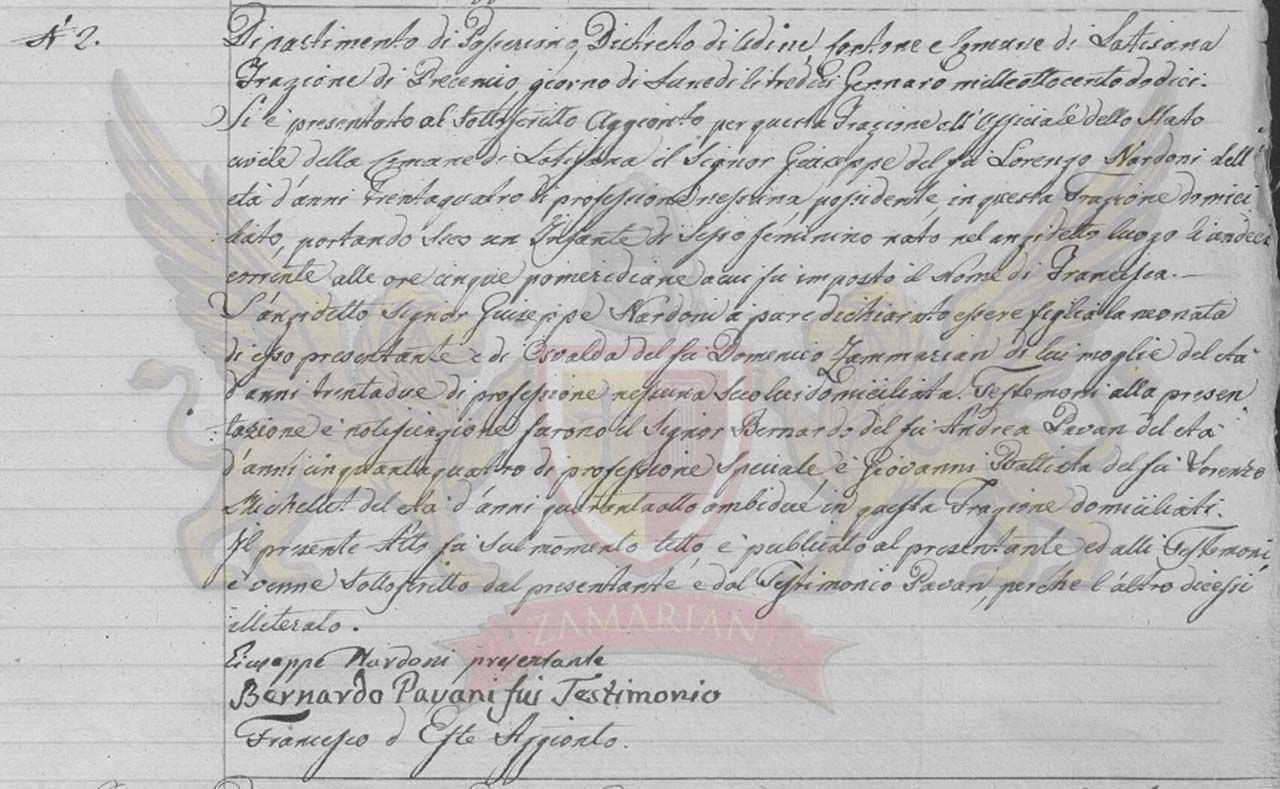 N° 2.
Dipartimento di Passeriano, Distreto di Udine, Cantone e Comune di Latisana
Frazione di Precenico, giorno di Lunedi li tredici Gennaro mille ottocento dodici.
Si è presentato al sottoscritto Aggionto per questa Frazione all'Officiale dello Stato
civile della Comune di Latisana il Signor Giuseppe del fù Lorenzo Nardoni dell'
età d'anni trentaquatro di professione nessuna possidente, in questa Frazione domici
liato, portando seco un Infante di sesso feminino nato nel anzidetto luogo li undeci
corrente alle ore cinque pomeridiane a cui fù imposto il Nome di Francesca. —
L'anzidetto Signor Giuseppe Nardoni à pure dichiarato essere figlia la neonata
di esso presentante e di Osvalda del fù Domenico Zammarian di lui moglie del età
d'anni trentadue di professione nessuna seco lui domiciliata. Testemoni alla presen
tazione e notificazione furono il Signor Bernardo del fù Andrea Pavan del età
d'anni cinquantaquatro di professione Speciale e Giovanni Battista del fù Lorenzo
Michellet del età d'anni quarantaotto ambidue in questa Frazione domiciliati.
Il presente Atto fù sul momento letto, e publicato al presentante ed alli Testemoni,
e venne sottoscritto dal presentante e dal Testimonio Pavan, perche l'altro dicessi
illiterato.
ZAMARIAN
Giuseppe Nardoni presentante
Bernardo Pavani fui Testimonio
Francesco d Este Aggionto.